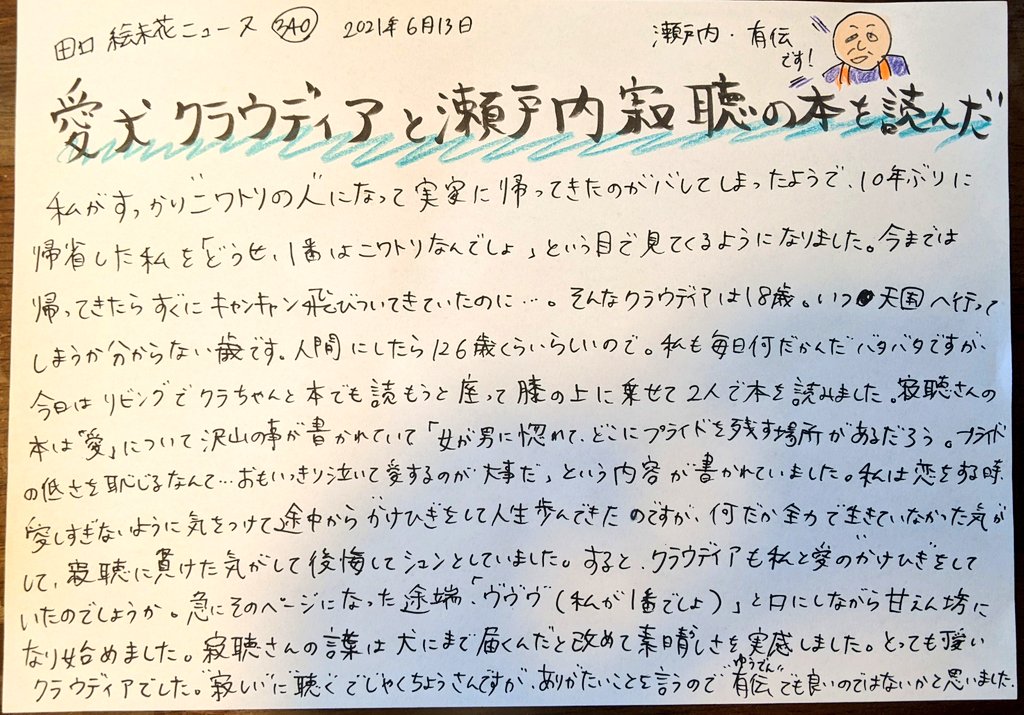 田口 絵未花ニュース 340 2021年6月13日
瀬戸内・有伝
です!
愛犬クラウディアと瀬戸内寂聴の本を読んだ
私がすっかり"ニワトリの人"になって実家に帰ってきたのがバレてしまったようで、10年ぶりに
帰省した私を「どうせ、1番はニワトリなんでしょ」という目で見てくるようになりました。今までは
帰ってきたらすぐにキャンキャン飛びついてきていたのに…。そんなクラウディアは18歳。いつ天国へ行って
しまうか分からない歳です。人間にしたら126歳くらいらしいので。私も毎日何だかんだバタバタですが、
今日はリビングでクラちゃんと本でも読もうと座って膝の上に乗せて2人で本を読みました。寂聴さんの
本は"愛"について沢山の事が書かれていて「女が男に惚れて、どこにプライドを残す場所があるだろう。プライド
の低さを恥じるなんて…おもいっきり泣いて愛するのが大事だ」という内容が書かれていました。私は恋をする時、
愛しすぎないように気をつけて途中からかけひきをして人生歩んできたのですが、何だか全力で生きていなかった気が
して、寂聴に負けた気がして後悔してシュンとしていました。すると、クラウディアも私と愛の"かけひき"をして
いたのでしょうか。急にそのページになった途端、「ヴヴヴ(私が1番でしょ)」と口にしながら甘えん坊に
なり始めました。寂聴さんの言葉は犬にまで届くんだと改めて素晴しさを実感しました。とっても可愛い
クラウディアでした。"寂しい"に聴くでじゃくちょうさんですが、ありがたいことを言うので"有伝"でも良いのではないかと思いました。
ゆうでん